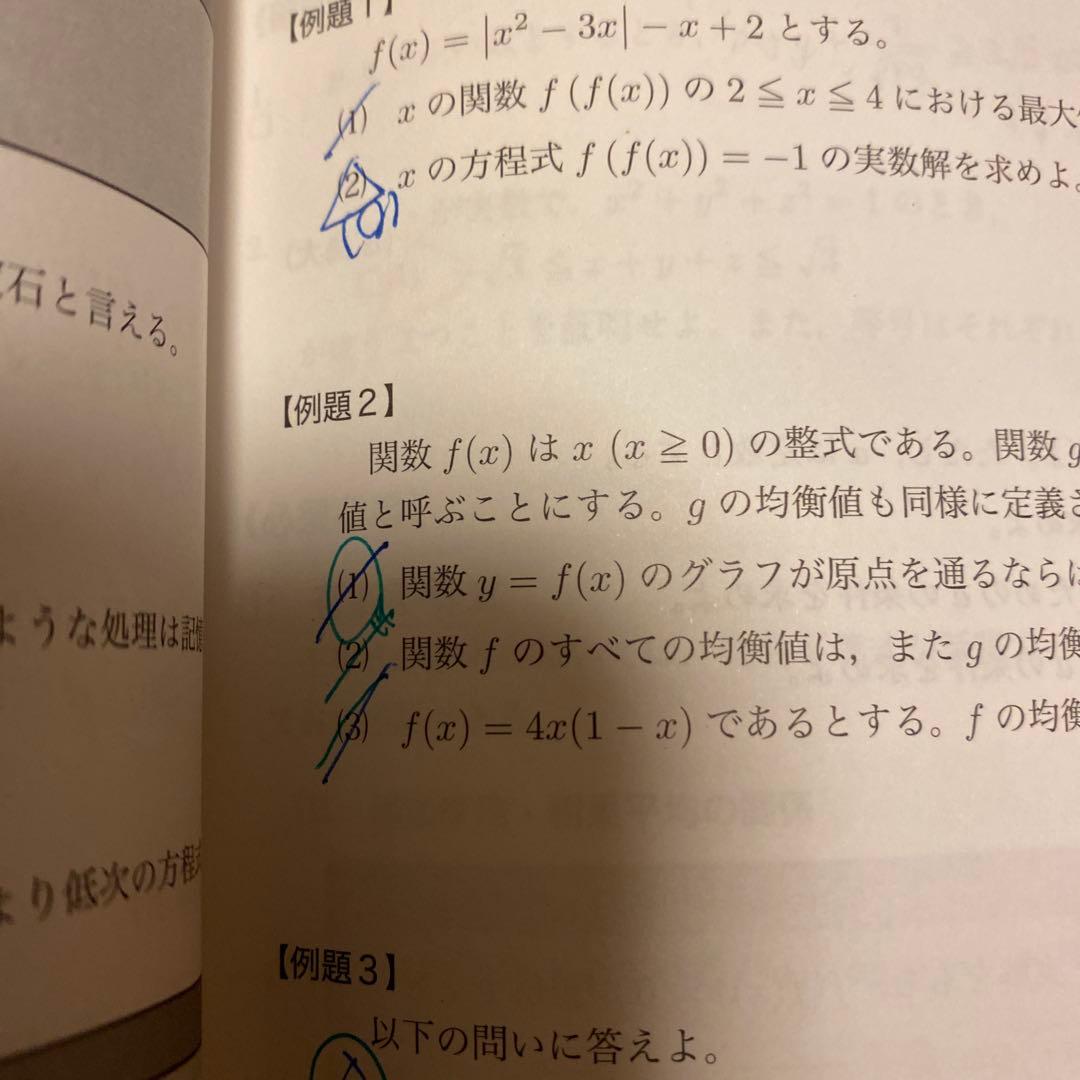 石と言える。
ような処理は記憶
より低次の方程式
【例題1】
f(x) = |x² − 3x| − x + 2 とする。
(1) x の関数 f (f(x)) の 2 ≦ x ≦ 4 における最大
(2) x の方程式 f (f(x)) = −1 の実数解を求めよ。
【例題2】
関数 f(x) は x (x ≧ 0) の整式である。関数 g
値と呼ぶことにする。g の均衡値も同様に定義さ
(1) 関数 y = f(x) のグラフが原点を通るならば
(2) 関数 f のすべての均衡値は，また g の均衡
(3) f(x) = 4x(1 − x) であるとする。f の均衡
【例題3】
以下の問いに答えよ。